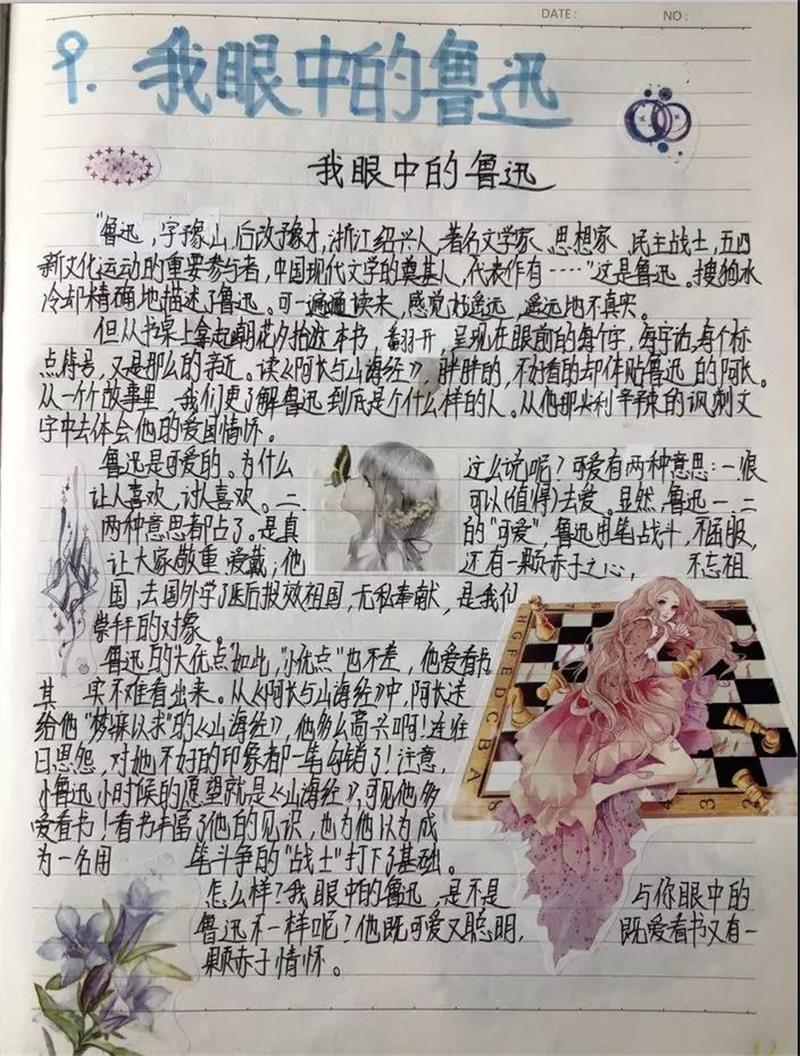 DATE: NO:
9. 我眼中的鲁迅
我眼中的鲁迅
"鲁迅,字豫山,后改豫才,浙江绍兴人,著名文学家、思想家、民主战士,五四
新文化运动的重要参与者,中国现代文学的奠基人,代表作有……"这是鲁迅。搜狗冰
冷却精确地描述了鲁迅。可一遍遍读来,感觉好遥远,遥远地不真实。
但从书桌上拿起朝花夕拾这本书,翻开,呈现在眼前的每个字,每字话,每个标
点符号,又是那么的亲近。读《阿长与山海经》,胖胖的,不好看的却体贴鲁迅的阿长。
从一个个故事里,我们更了解鲁迅到底是个什么样的人。从他那尖利辛辣的讽刺文
字中去体会他的爱国情怀。
鲁迅是可爱的。为什么这么说呢?可爱有两种意思:一.很
让人喜欢,讨人喜欢。二.可以(值得)去爱。显然,鲁迅一、二
两种意思都占了。是真的"可爱",鲁迅用笔战斗,不屈服,
让大家敬重,爱戴;他还有一颗赤子之心,不忘祖
国,去国外学了医后报效祖国,无私奉献,是我们
崇拜的对象。
鲁迅的"大优点"如此,"小优点"也不差,他爱看书
其实不难看出来。从《阿长与山海经》中,阿长送
给他"梦寐以求"的《山海经》,他多么高兴啊!连往
日恩怨,对她不好的印象都一笔勾销了!注意,
小鲁迅小时候的愿望就是《山海经》,可见他多
爱看书!看书丰富了他的见识,也为他以为成
为一名用笔斗争的"战士"打下了基础。
怎么样?我眼中的鲁迅,是不是与你眼中的
鲁迅不一样呢?他既可爱又聪明,既爱看书又有一
颗赤子情怀。